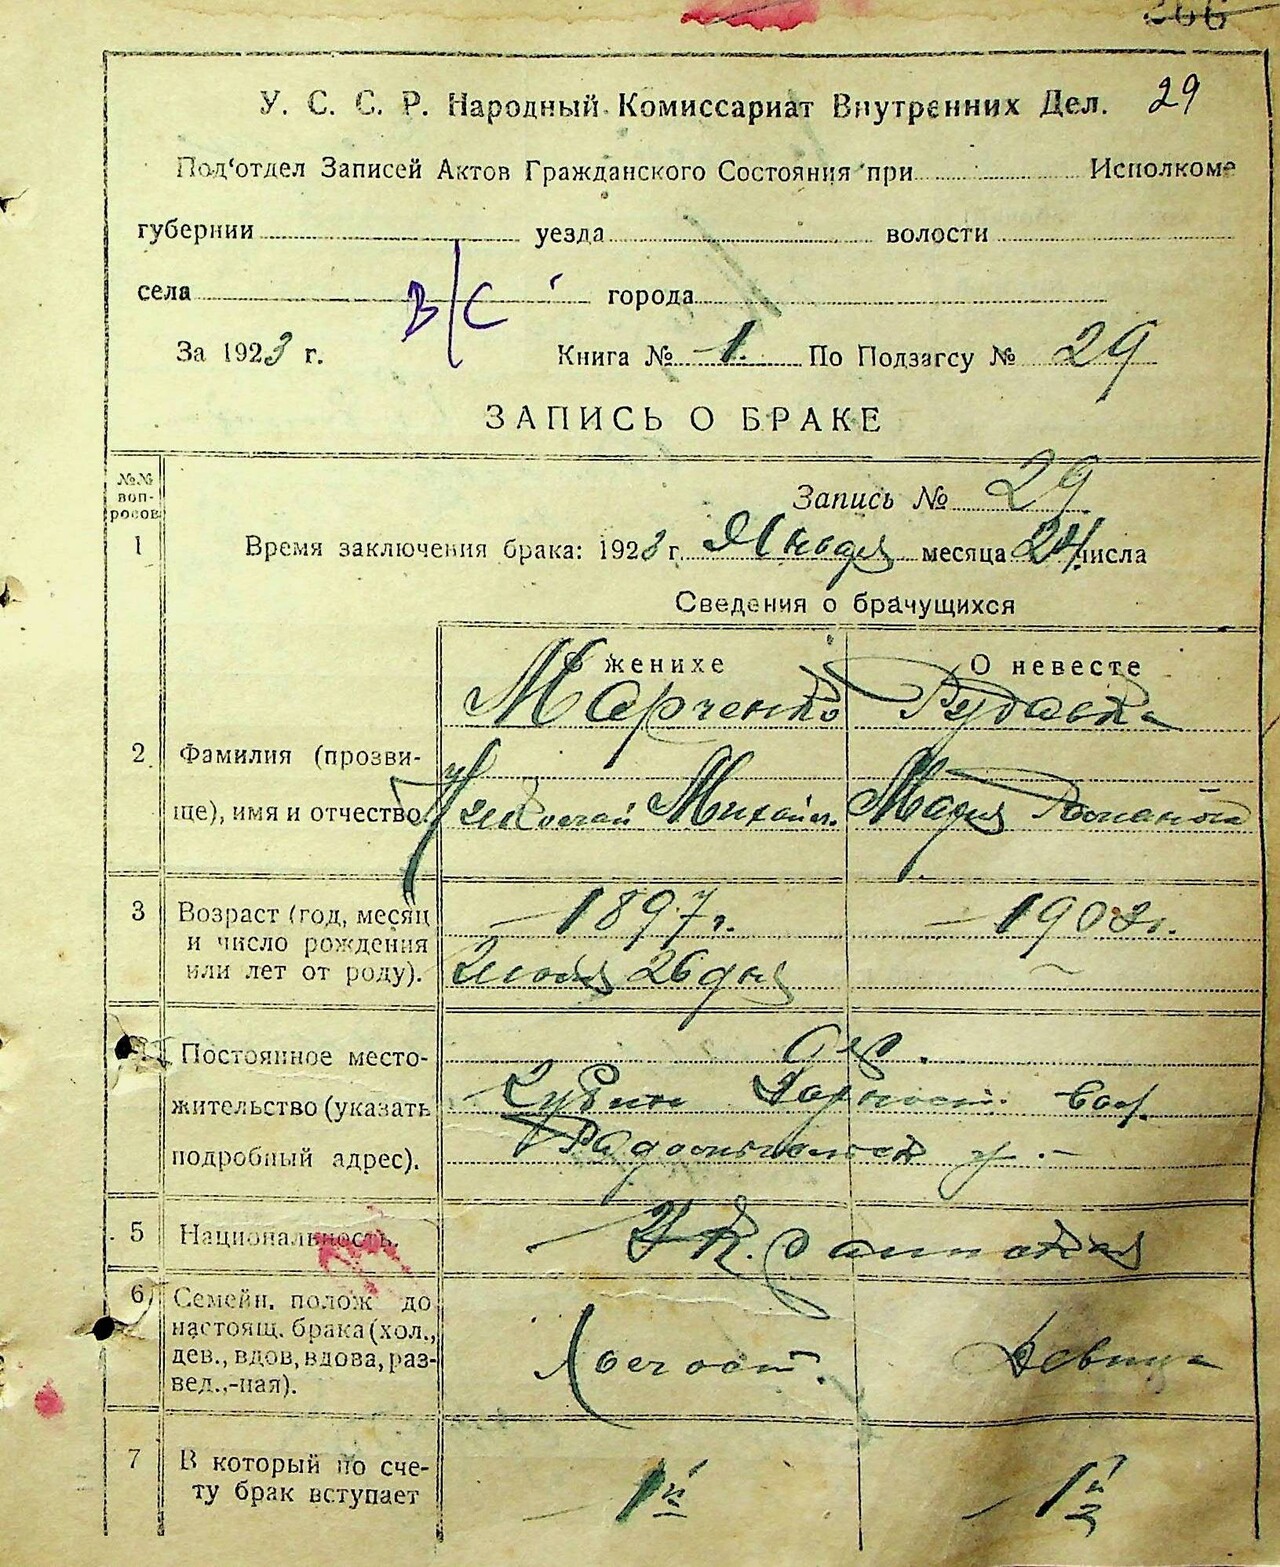 366
У. С. С. Р. Народный Комиссариат Внутренних Дел. 29
Под‘отдел Записей Актов Гражданского Состояния при Исполкоме
губернии уезда волости
села города
В/С
За 1923 г. Книга № 1. По Подзагсу № 29
ЗАПИСЬ О БРАКЕ
№№ воп-росов
Запись № 29
1 Время заключения брака: 1923 г. Января месяца 24 числа
Сведения о брачущихся
О женихе О невесте
Марченко Рудавка
2 Фамилия (прозви-
ще), имя и отчество Николай Михайл. Мария Романова
3 Возраст (год, месяц 1897 г. 1903 г.
и число рождения
или лет от роду). Июля 26 дня
Дер.
Постоянное место-
жительство (указать вол.
подробный адрес). Радомысльск у.
5 Национальность. Украинская
6 Семейн. полож до
настоящ. брака (хол.,
дев., вдов, вдова, раз- Холост. Девица
вед.,-ная).
7 В который по сче- 1й 1й
ту брак вступает